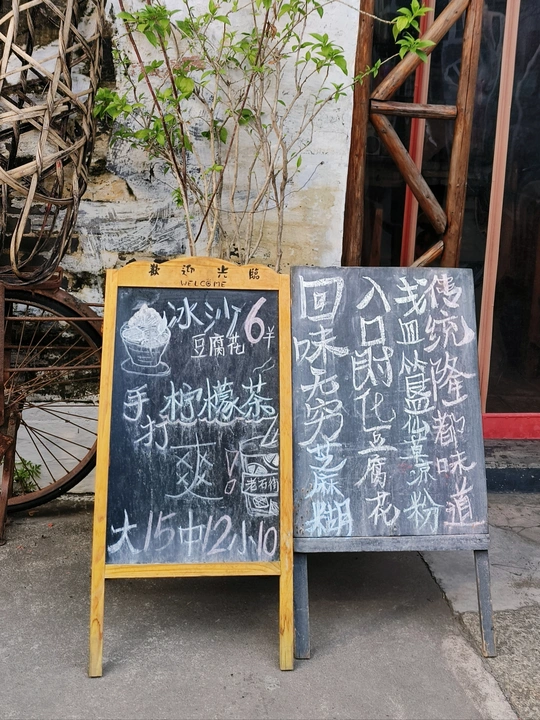 歡迎光臨
WELCOME
冰沙6¥
豆腐花
手打柠檬茶
爽
老石街
大15中12小10
傳统隆都味道
仙草凉粉
入口即化豆腐花
回味无穷芝麻糊